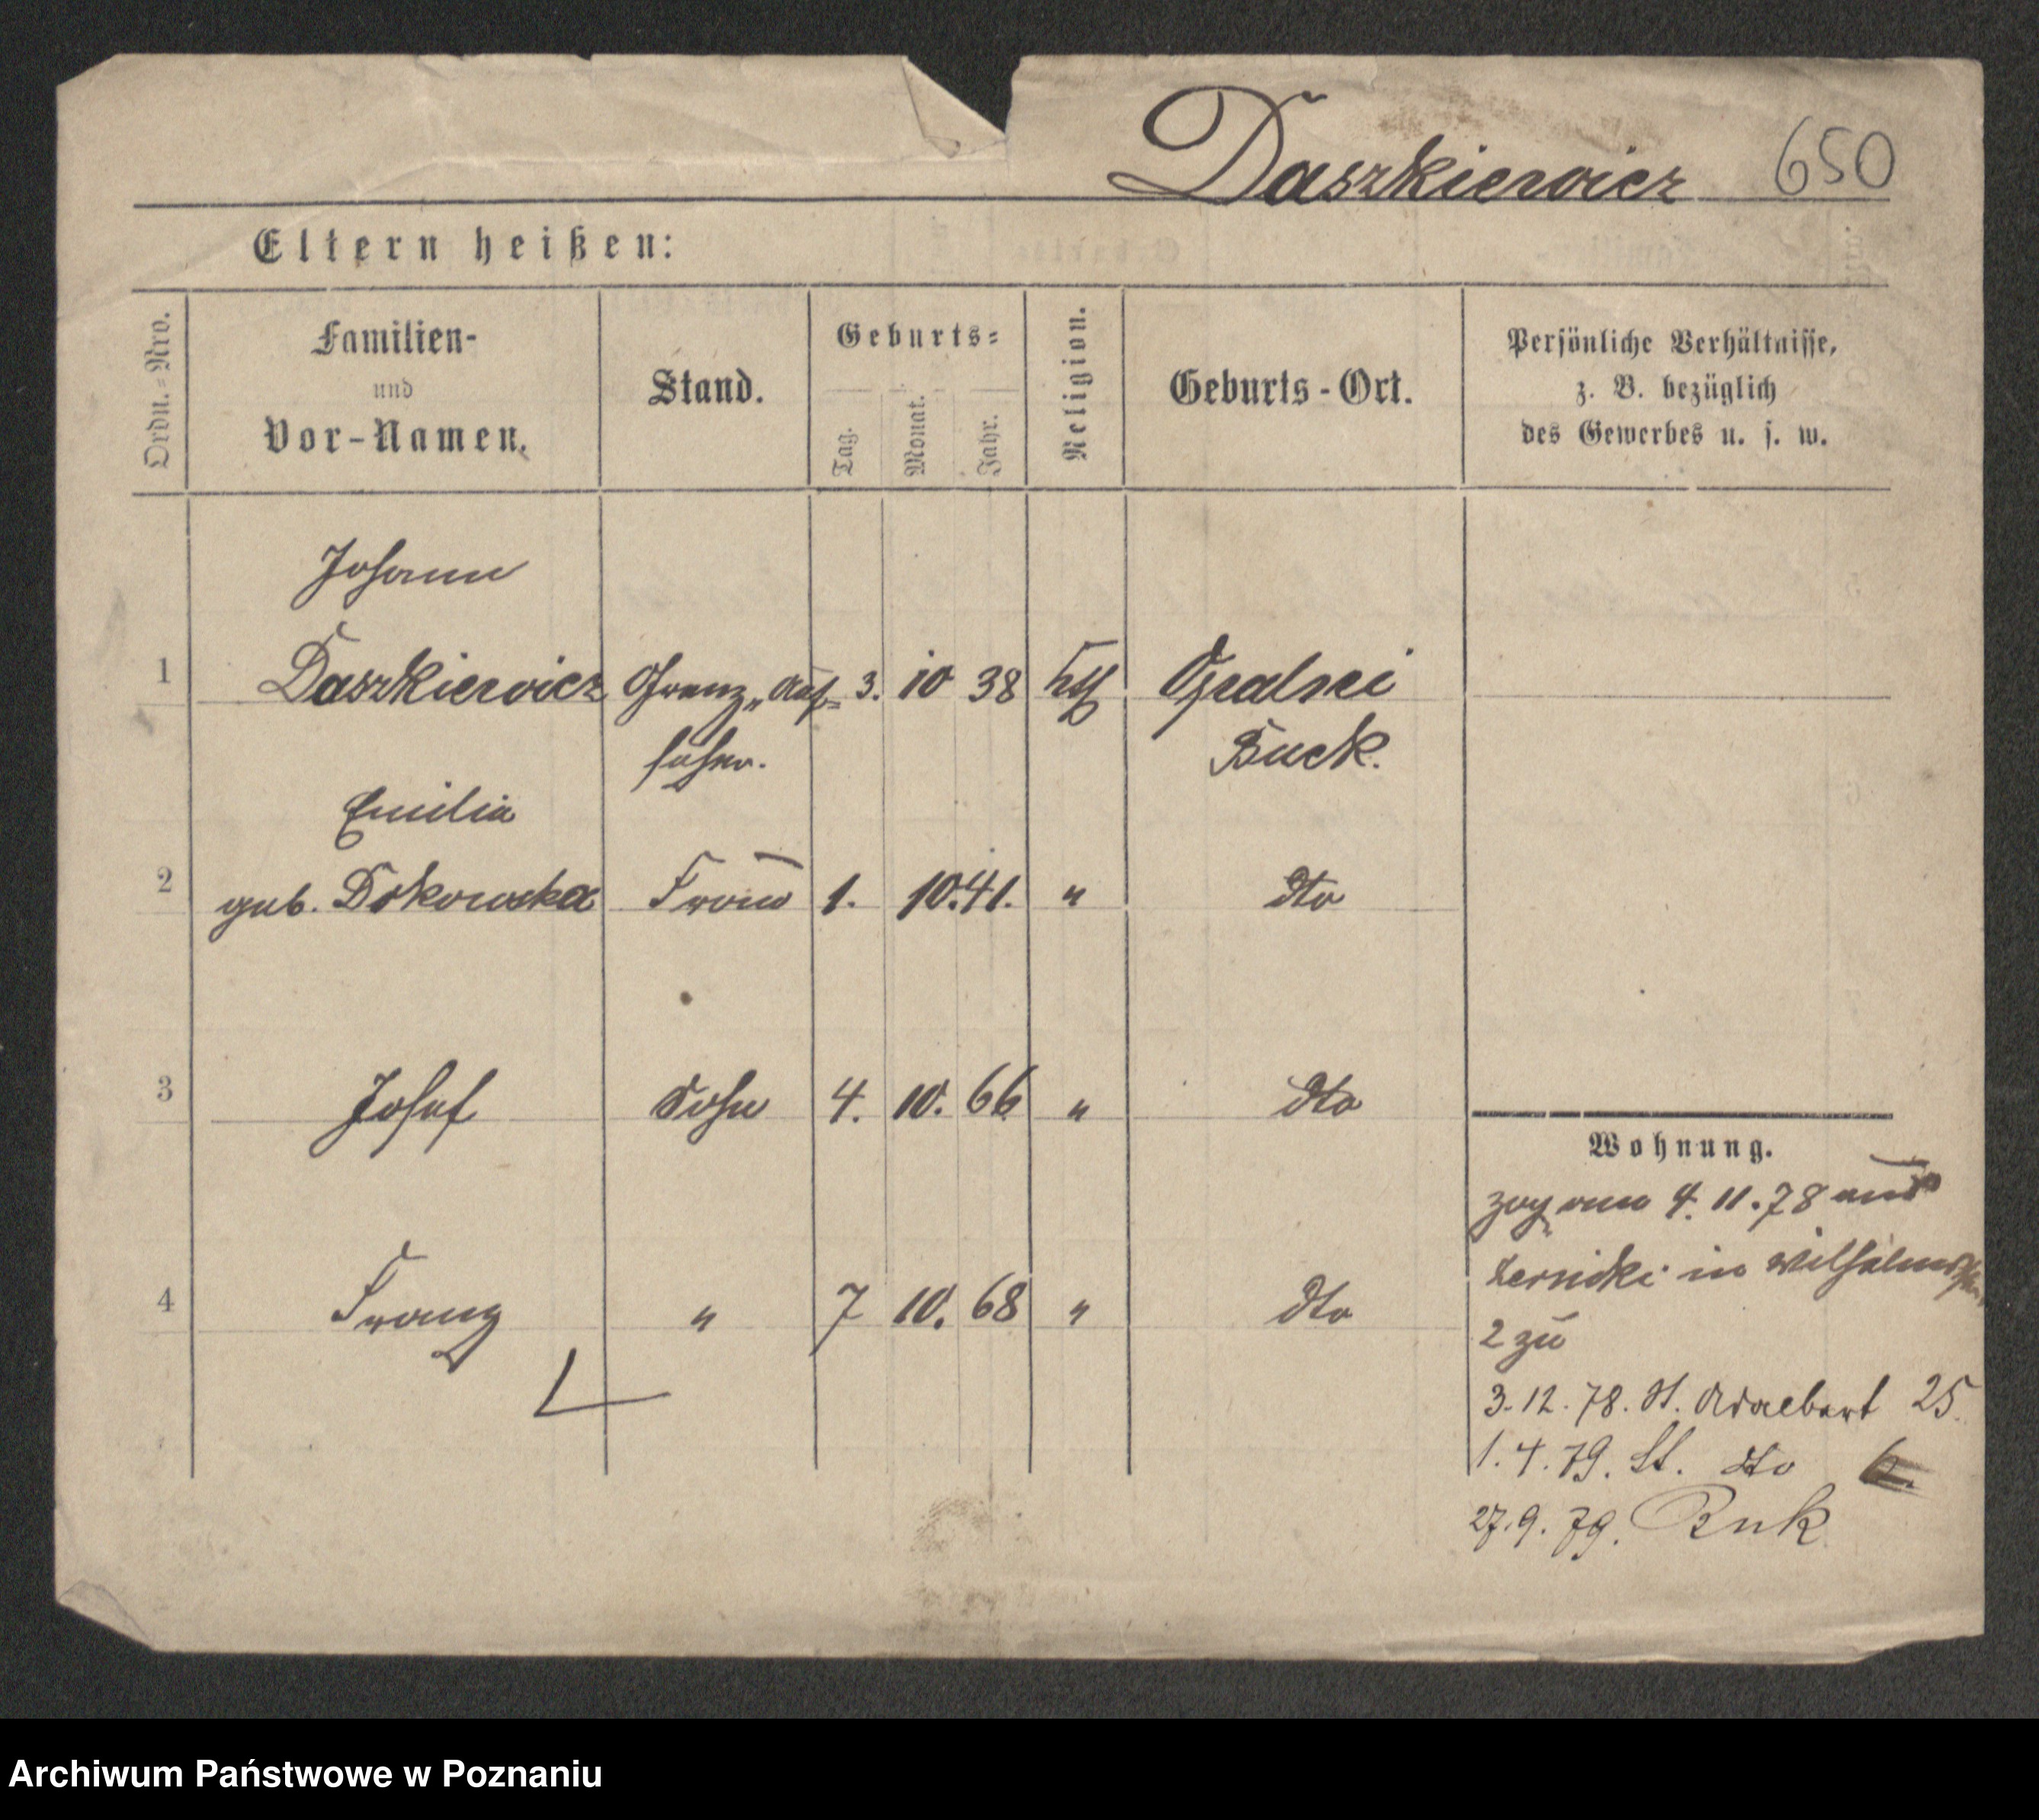 Daszkiewicz 650
Eltern heißen:
Ordn.-Nro. Familien- und Vor-Namen. Stand. Geburts- Tag. Monat. Jahr. Religion. Geburts-Ort. Persönliche Verhältnisse, z. B. bezüglich des Gewerbes u. s. w.
Johann
1 Daszkiewicz Grenz-Auf- 3. 10 38 kth Opaleni
seher. Buck.
Emilia
2 geb. Frau 1. 10. 41. " dto
3 Josef Sohn 4. 10. 66 " dto
Wohnung.
zog am 4. 11. 78 aus
in Wilhelmstr.
4 Franz " 7 10. 68 " dto
2 zu
3. 12. 78. St. Adalbert 25.
1. 4. 79. St. dto
27. 9. 79. Buk
Archiwum Państwowe w Poznaniu